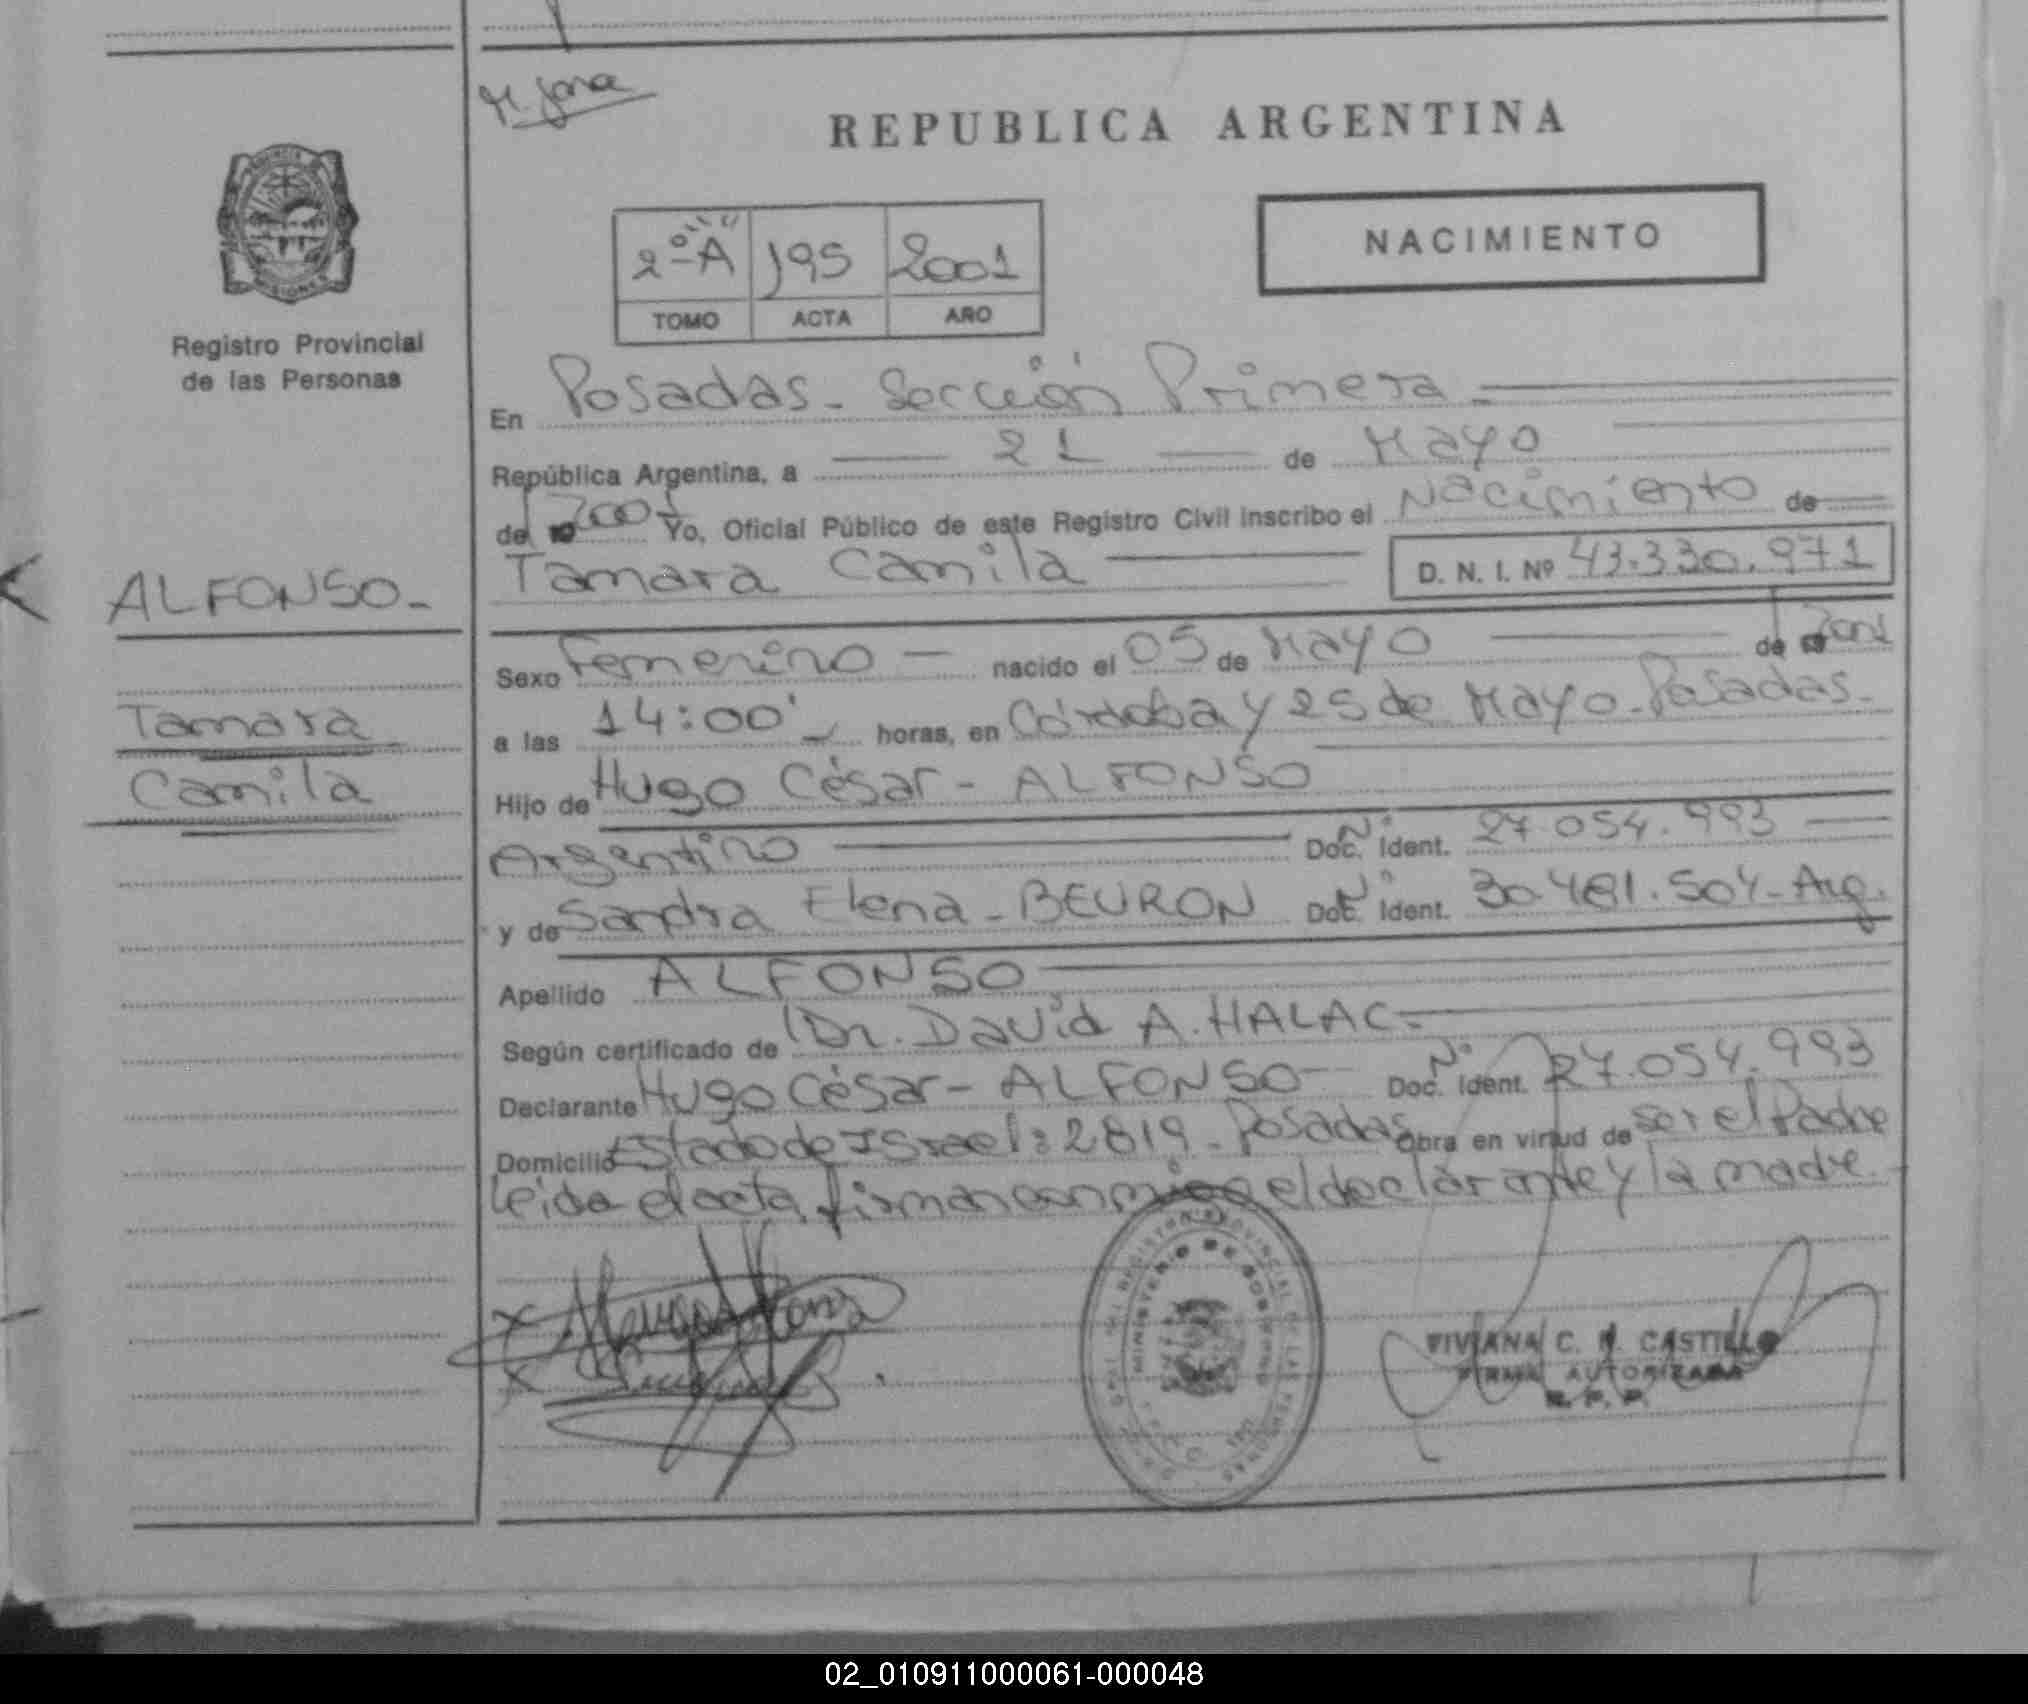 REPUBLICA ARGENTINA
NACIMIENTO
2º-A 195 2001
TOMO ACTA AÑO
MISIONES
Registro Provincial
de las Personas
En Posadas - Sección Primera -
República Argentina, a 21 de Mayo
de 2001 Yo, Oficial Público de este Registro Civil inscribo el Nacimiento de
Tamara Camila D. N. I. Nº 43.330.971
ALFONSO-
Tamara
Camila
Sexo Femenino - nacido el 05 de Mayo de 2001
a las 14:00' horas, en Córdoba y 25 de Mayo - Posadas -
Hijo de Hugo César - ALFONSO
Argentino Nº Doc. Ident. 27.054.993
y de Sandra Elena - BEURON Nº Doc. Ident. 30.481.504 - Arg.
Apellido ALFONSO
Según certificado de Dr. David A. HALAC -
Declarante Hugo César - ALFONSO Nº Doc. Ident. 27.054.993
Domicilio Estado de Israel: 2819 - Posadas obra en virtud de ser el Padre
leida el acta, firman conmigo el declarante y la madre
VIVIANA C. CASTILLO
FIRMA AUTORIZADA
R. P. P.
02_010911000061-000048